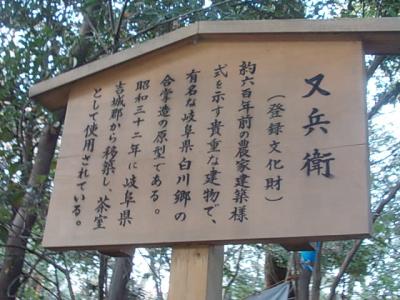 又兵衛
(登録文化財)
約六百年前の農家建築様
式を示す貴重な建物で、
有名な岐阜県白川郷の
合掌造の原型である。
昭和三十二年に岐阜県
吉城郡から移築し、茶室
として使用されている。